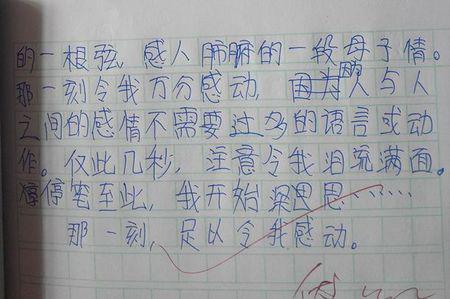 的一根弦，感人肺腑的一段母子情。
那一刻令我万分感动，因为人与人
之间的感情不需要过多的语言或动
作。仅此几秒，注意令我泪流满面。
停笔至此，我开始深思思……
那一刻，足以令我感动。